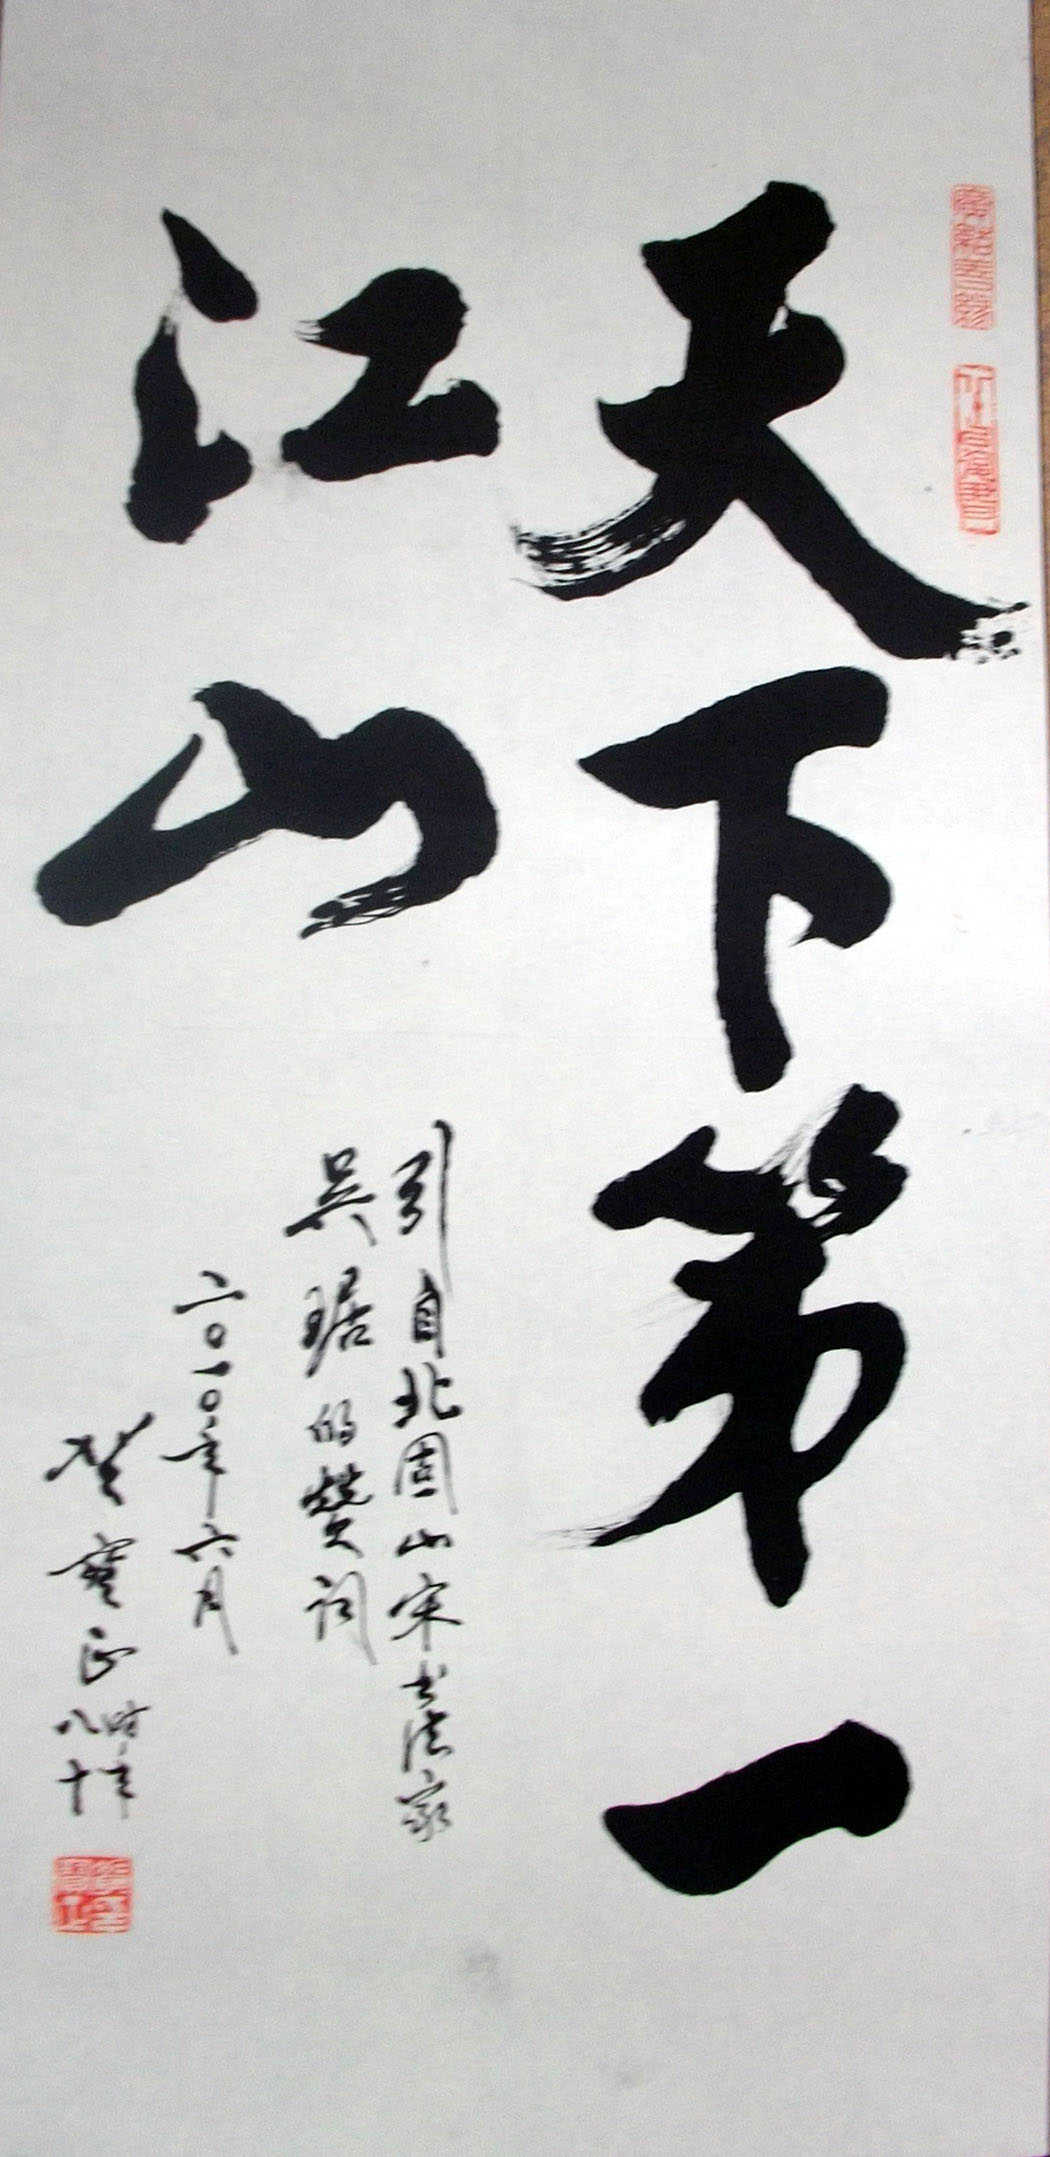 天下第一
江山
引自北固山宋书法家
吴琚的赞词
二〇一〇年六月
宝正时年
八十